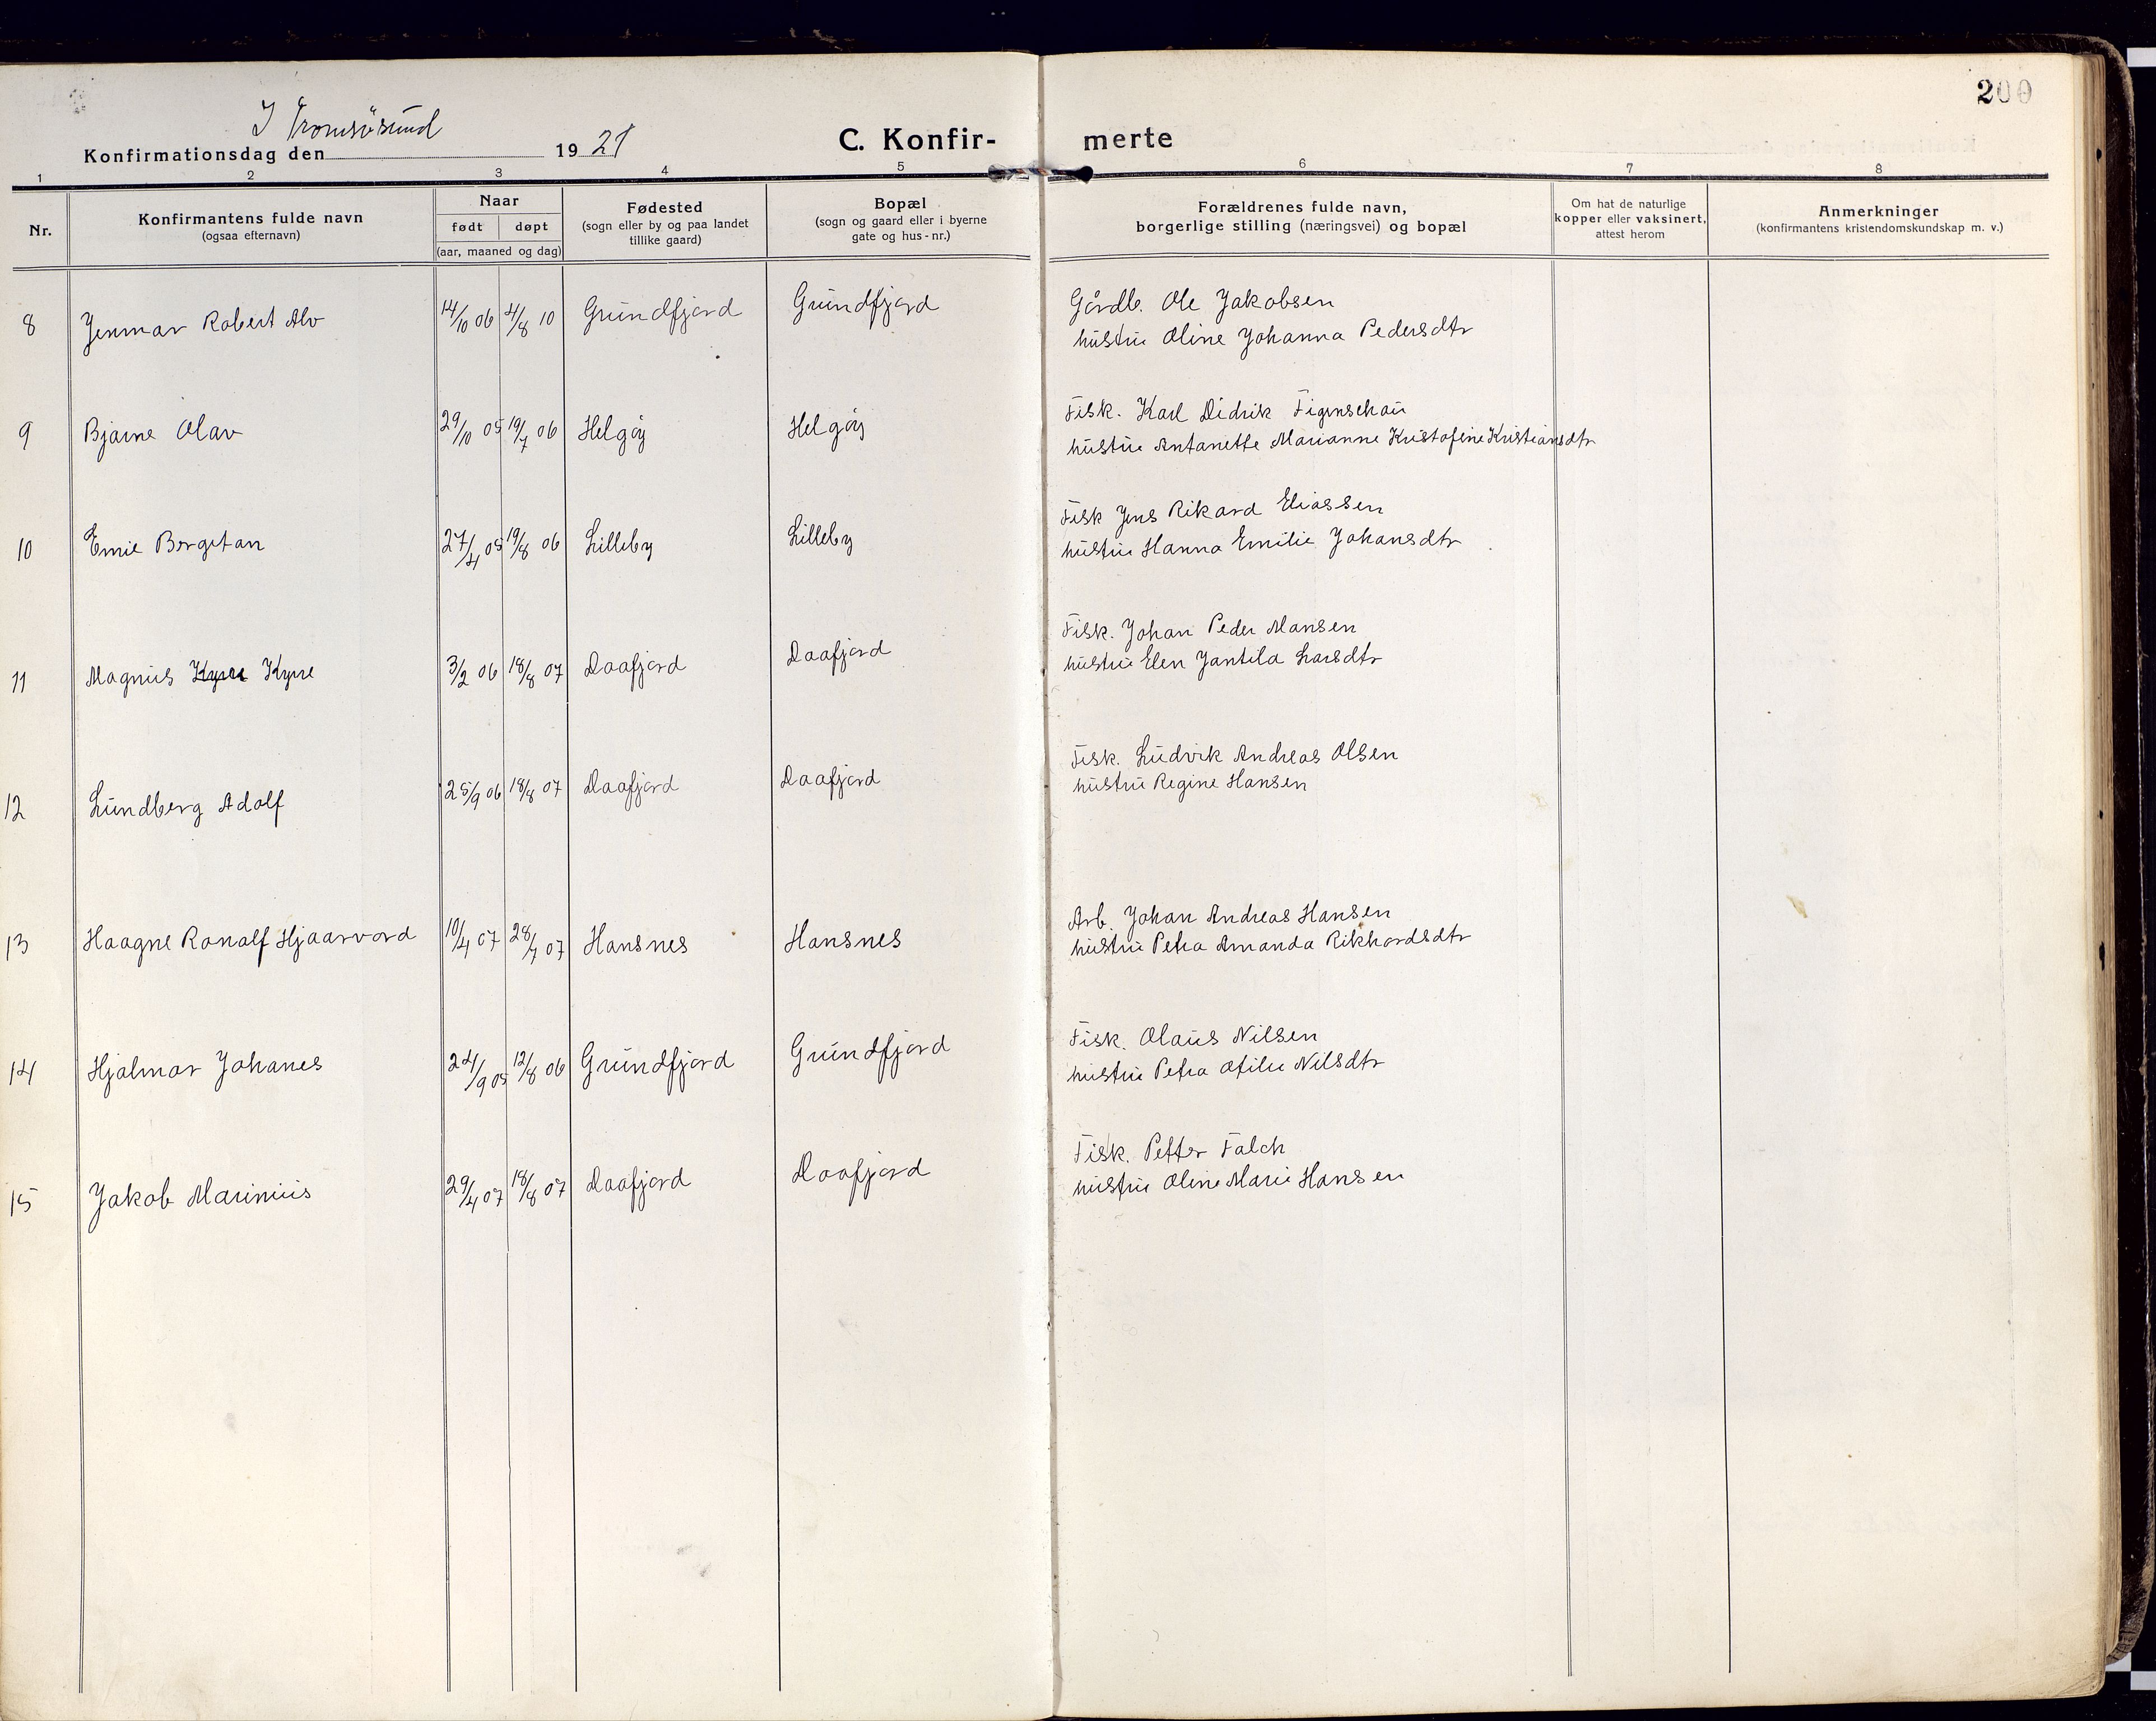 200
I Tromsösund
Konfirmationsdag den 1921
C. Konfir- merte
1 2 3 4 5 6 7 8
Nr.
Konfirmantens fulde navn
(ogsaa efternavn)
Naar
født døpt
(aar, maaned og dag)
Fødested
(sogn eller by og paa landet
tillike gaard)
Bopæl
(sogn og gaard eller i byerne
gate og hus-nr.)
Forældrenes fulde navn,
borgerlige stilling (næringsvei) og bopæl
Om hat de naturlige
kopper eller vaksinert,
attest herom
Anmerkninger
(konfirmantens kristendomskundskap m. v.)
8 Jenmar Robert Alv 14/10 06 4/8 10 Grundfjord Grundfjord Gårdb. Ole Jakobsen
hustru Oline Johanna Pedersdtr
9 Bjarne Olav 29/10 05 19/7 06 Helgöy Helgöy Fisk. Karl Didrik Figenschau
hustru Antanette Marianne Kristofine Kristiansdtr
10 Emie Bergitan 27/4 05 19/8 06 Lilleby Lilleby Fisk Jens Rikard Eliassen
hustru Hanna Emilie Johansdtr
11 Magnus Kyrre 3/2 06 18/8 07 Daafjord Daafjord Fisk. Johan Peder Mansen
hustru Elen Jantila Larsdtr
12 Lundberg Adolf 25/9 06 18/8 07 Daafjord Daafjord Fisk. Ludvik Andreas Olsen
hustru Regine Hansen
13 Haagne Ranalf Hjaarvard 10/4 07 28/7 07 Hansnes Hansnes Arb. Johan Andreas Hansen
hustru Petra Amanda Rikhardsdtr
14 Hjalmar Johanes 24/9 05 12/8 06 Grundfjord Grundfjord Fisk. Olaus Nilsen
hustru Petra Otilie Nilsdtr
15 Jakob Marinius 29/4 07 18/8 07 Daafjord Daafjord Fisk. Petter Falch
hustru Oline Marie Hansen